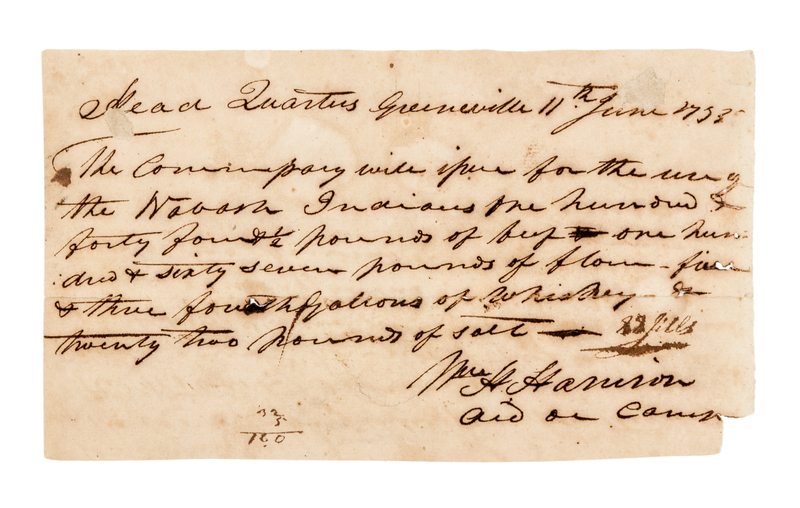 Head Quarters Greeneville 11th June 1795
The Commissary will issue for the use of
the Wabash Indians one hundred &
forty four & ½ pounds of beef one hun-
dred & sixty seven pounds of flour - five
& three fourth gallons of whiskey &
twenty two pounds of salt 22 Jills
Wm H Harrison
Aid de Camp
32
5
160